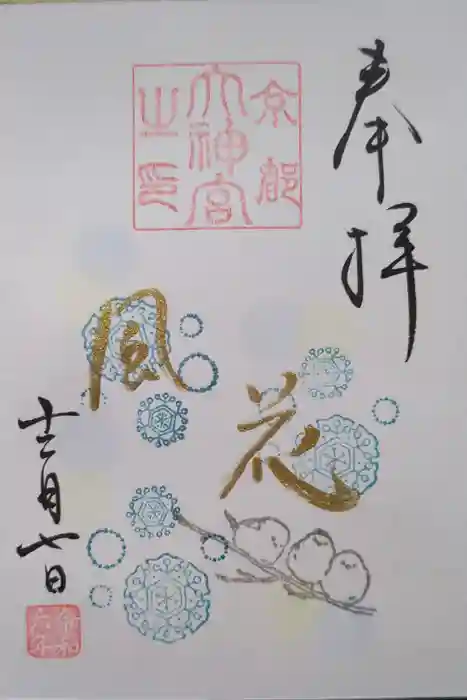 奉拝
京都
大神宮
之印
花
風
十二月七日
令和六年